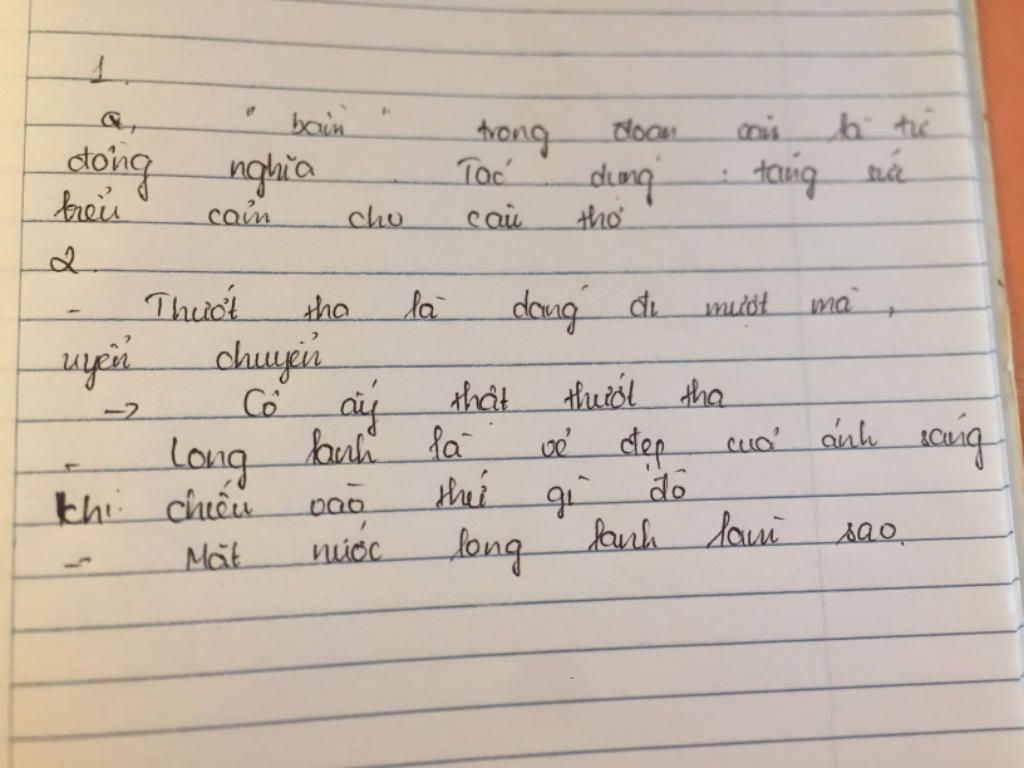 1.
a, " bàn " trong đoạn là từ
đồng nghĩa. Tác dụng : tăng sức
cảm cho câu thơ
2.
- Thướt tha là dáng đi mượt mà,
uyển chuyển
-> Cô ấy thật thướt tha
- Long lanh là vẻ đẹp của ánh sáng
khi chiếu vào thứ gì đó
- Mặt nước long lanh làm sao.